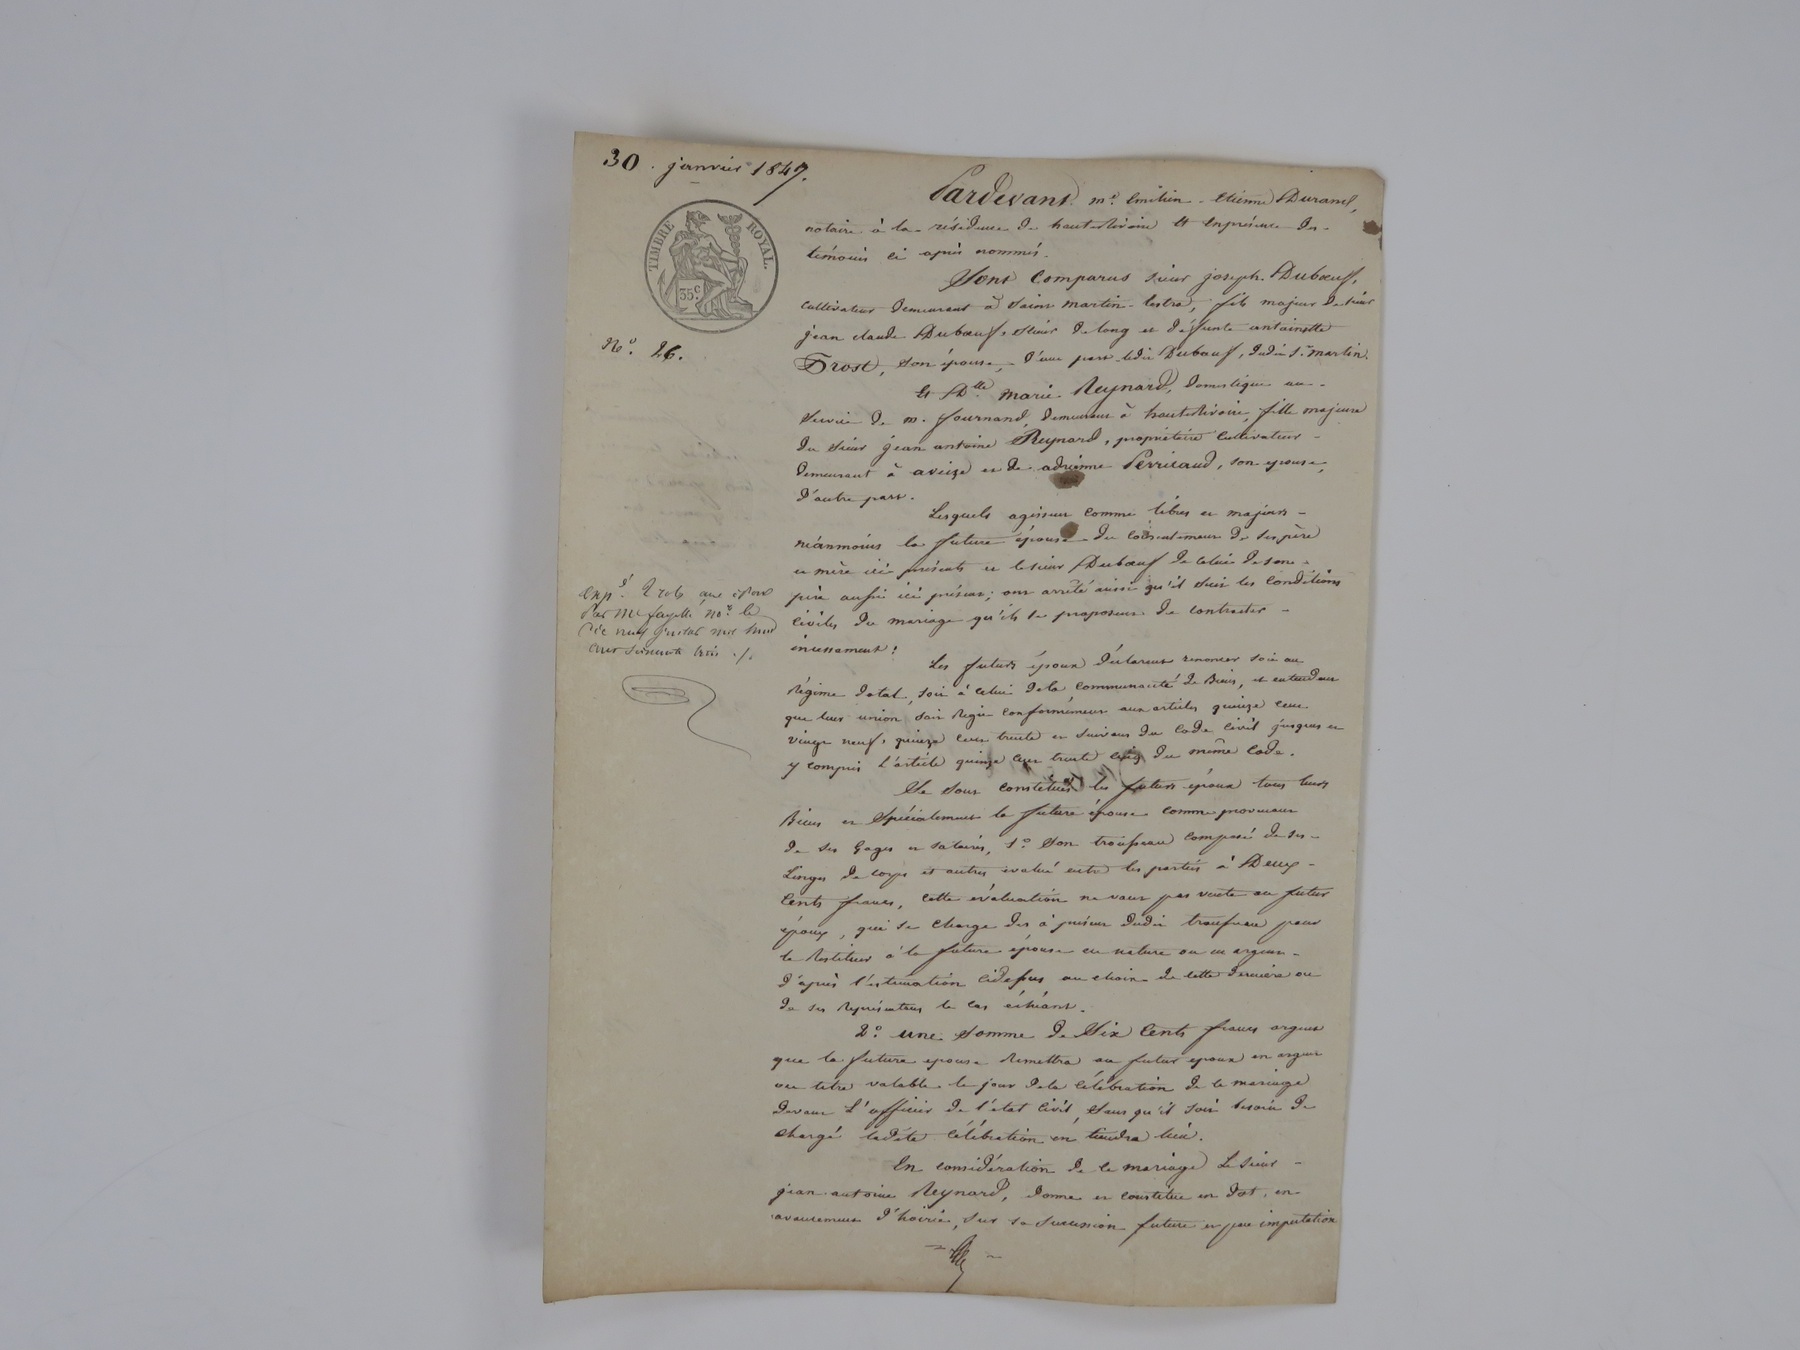 30. janvier 1847.
TIMBRE ROYAL.
35 c.
N.º 26.
Pardevant me. Emilien - Etienne Durand,
notaire à la résidence de hauterivoire et en présence des
témoins ci après nommés.
Sont Comparus sieur joseph Dubœuf,
cultivateur demeurant à Saint martin lestra, fils majeur de sieur
jean claude Dubœuf, sieur de long et défunte antoinette
Trost, son épouse, d'une part ledit Dubœuf, dudit St. martin.
Et Dlle marie Reynard, domestique au
service de m. Journand, demeurant à hauterivoire, fille majeure
du sieur jean antoine Reynard, propriétaire cultivateur
demeurant à aveize et de adrienne Perricaud, son epouse,
d'autre part.
Lesquels agissant comme libres et majeurs
néanmoins la future épouse du consentement de ses père
et mère ici présents et le sieur Dubœuf de celui de son
père aussi ici présent; ont arrêté ainsi qu'il suit les conditions
civiles du mariage qu'ils se proposent de contracter
incessament:
Les futurs époux déclarent renoncer soit au
régime dotal, soit à celui de la communauté de Biens, et entendent
que leur union soit régie conformément aux articles quinze cent
vingt neuf, quinze cent trente et suivans du Code Civil jusques et
y compris l'article quinze cent trente cinq du même Code.
Se sont constitués les futurs époux tous leurs
Biens et Spécialement la future épouse comme provenant
de ses Gages et salaires, 1º Son trousseau composé de ses
Linges de corps et autres evalué entre les parties à Deux
Cents francs, cette évaluation ne vaut pas vente au futur
époux, qui se charge dès à présent dudit trousseau pour
le Restituer à la future épouse en nature ou en argent
d'après l'estimation cidessus au choix de cette dernière ou
de ses représentans le cas échéant.
2º une Somme de Six Cents francs argent
que la future epouse Remettra au futur epoux en argent
ou titre valable le jour de la célébration de ce mariage
devant L'officier de l'état civil, sans qu'il soit besoin de
chargé ladite célébration en tiendra lieu.
En considération de ce mariage Le sieur
jean antoine Reynard, donne et constitue en dot, en
avancement d'hoirie, sur sa succession future et par imputation
Exp.